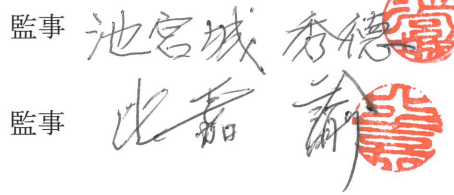 監事 池宮城 秀德
監事 比嘉